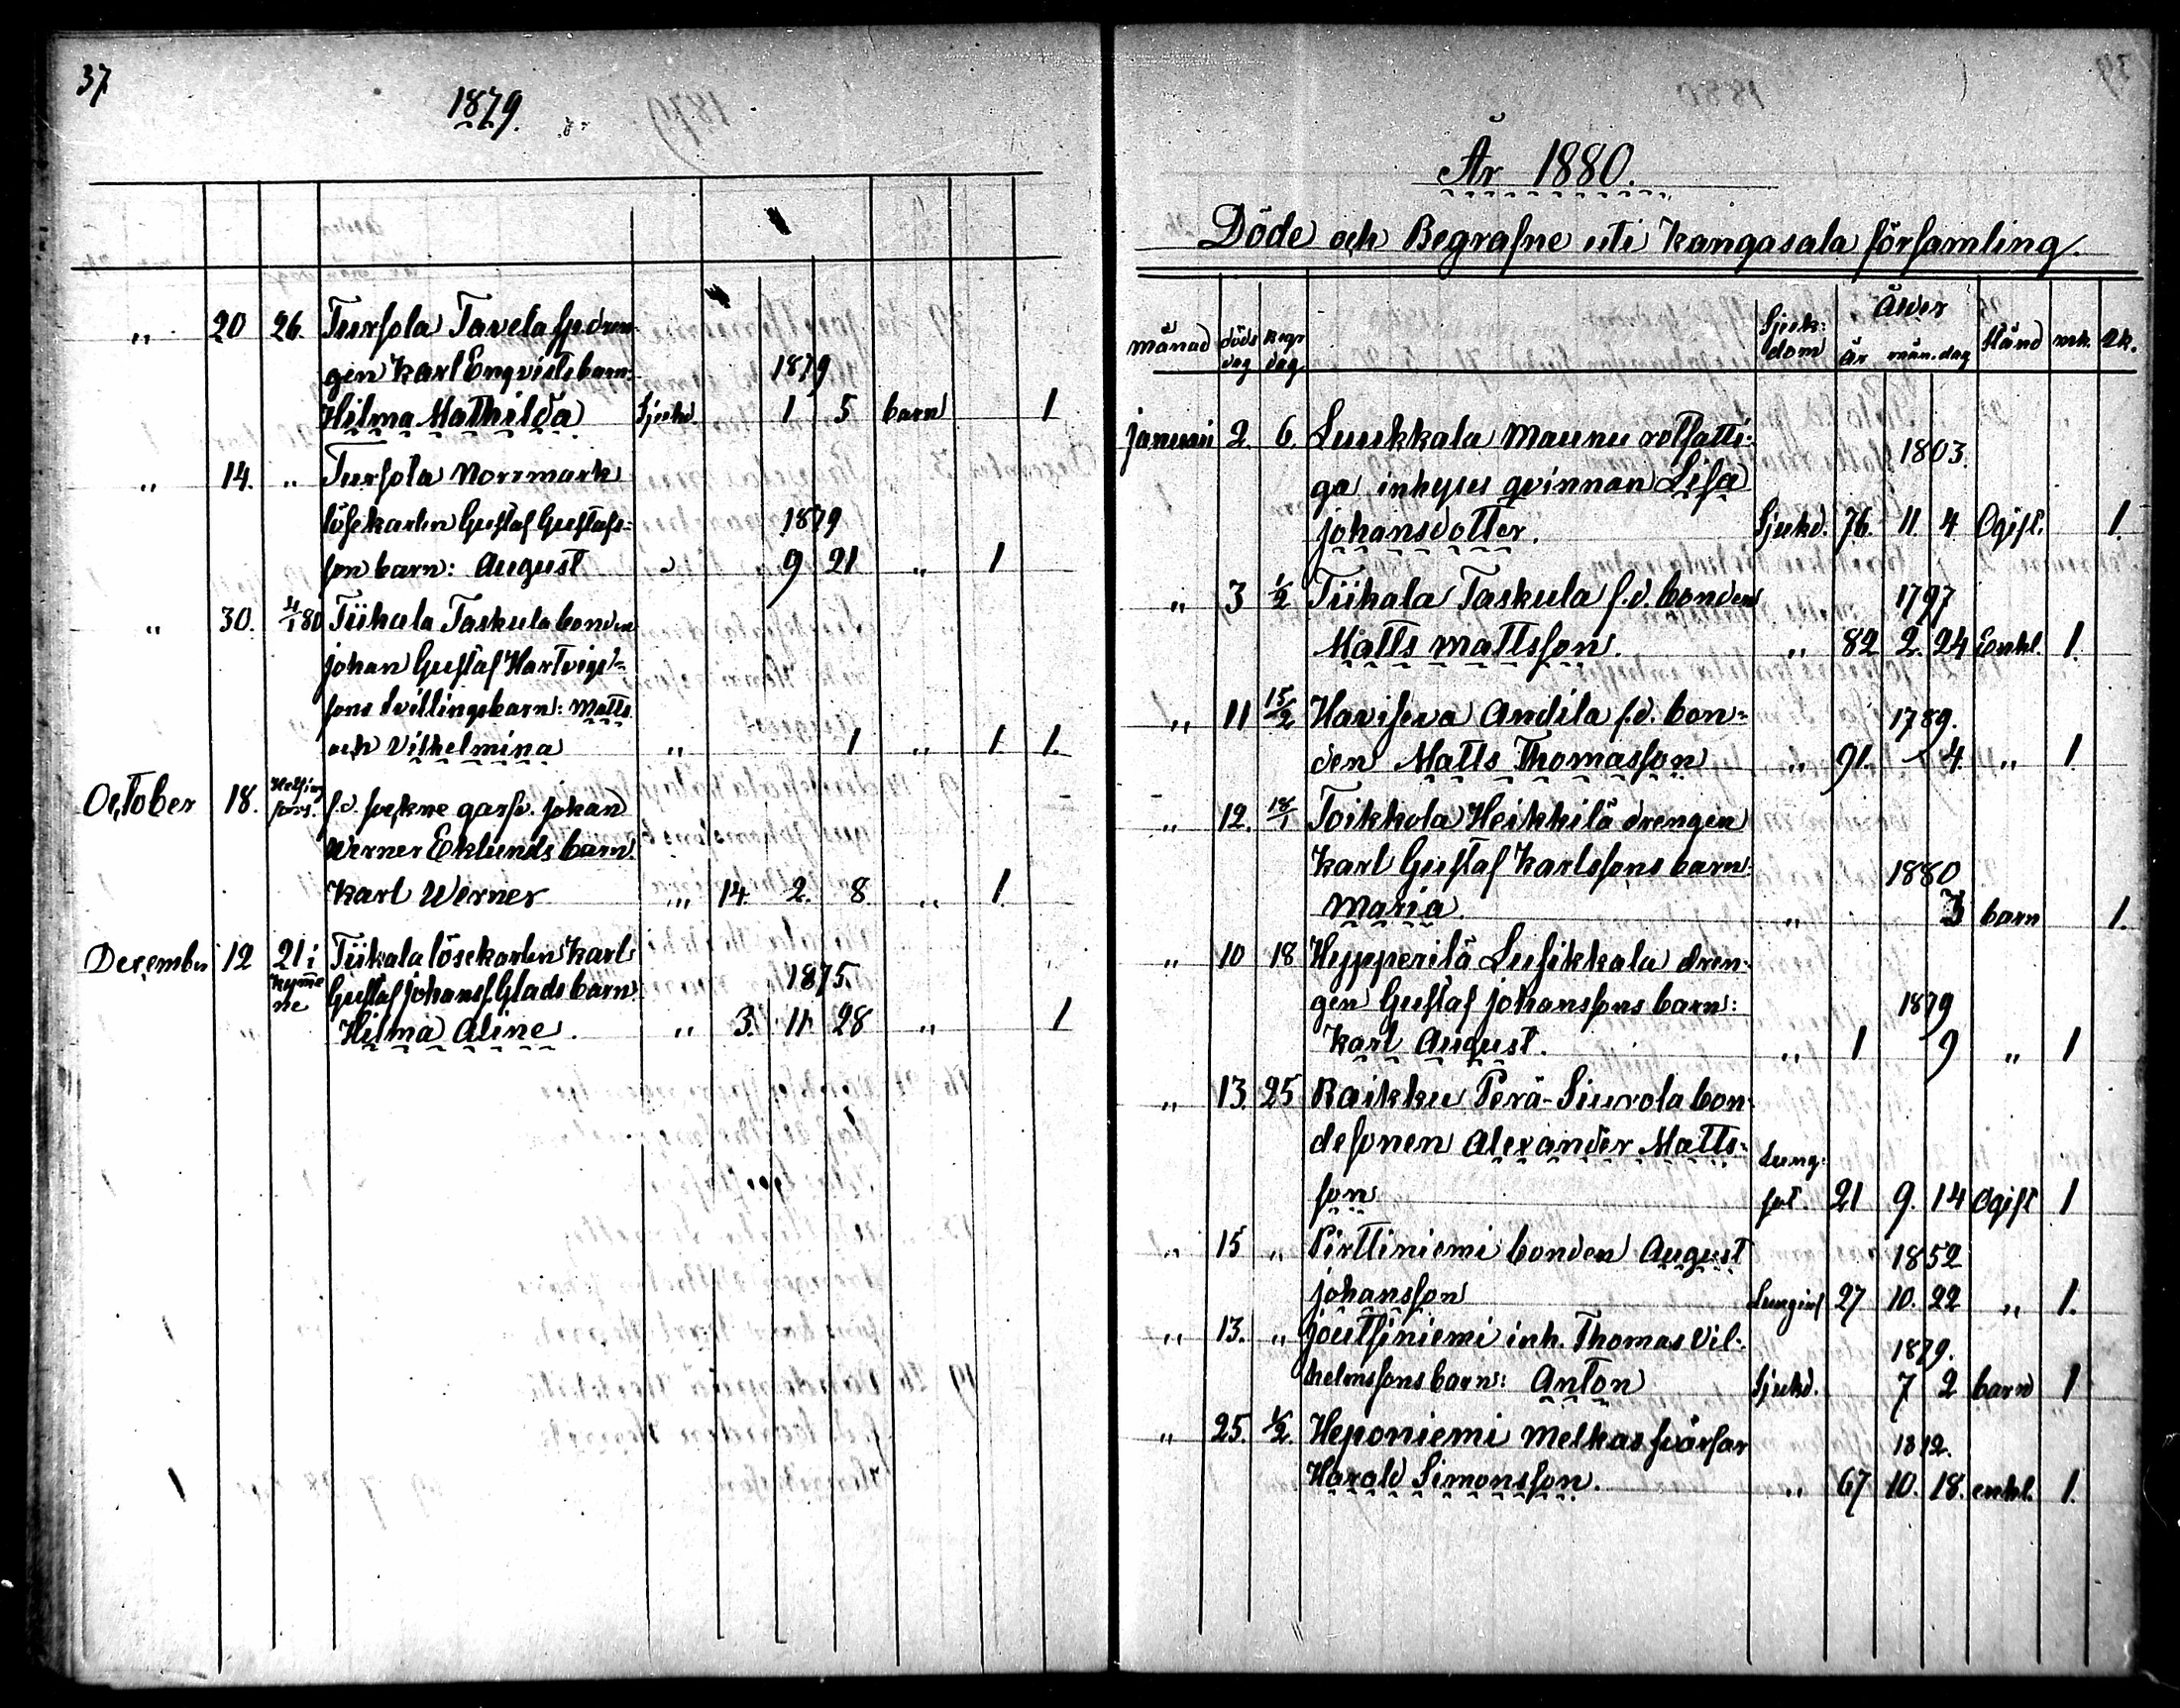 37
1879.
„ 20 26. Tursola Tavela spdren-
gen Karl Enqvists barn: 1879
Hilma Mathilda Sjukd. 1 5 barn 1
„ 14. „ Tursola Norrmark
lösekarlen Gustaf Gustafs- 1879
son barn: August „ „ 9 21 „ 1
„ 30. 11/1 80 Tiihala Taskula bonden
Johan Gustaf Hartvigs-
sons tvillingsbarn: Matts
och Vilhelmina „ 1 „ 1. 1.
October 18. Helsing
fors. f.d. Johan
Werner Eklunds barn.
Karl Werner „ 14. 2. 8. „ 1.
December 12 21 i Tiihala lösekarlen Karl
Kyme
ne Gustaf Johanss. Glads barn 1875.
Hilma Aline. „ 3. 11 28 „ 1
År 1880.
Döde och Begrafne uti Kangasala församling.
månad döds
dag begr
dag Sjuk-
dom Ålder
år mån. dag Stånd mk. qk.
Januari 2. 6. Luukkala Maunu rotfatti- 1803.
ga inhyses qvinnan Lisa
Johansdotter. Sjukd. 76. 11. 4. Ogift. 1.
„ 3 1/2 Tiihala Taskula f.d. bonden 1797
Matts Mattsson. „ 82 2. 24 Enkl. 1.
„ 11 15/2 Haviseva Andila f.d. bon- 1789.
den Matts Thomasson „ 91. - 4. „ 1.
„ 12. 18/1 Toikkola Heikkilä drengen
Karl Gustaf Karlssons barn: 1880
Maria. „ 3 barn 1.
„ 10 18 Hypperilä Lusikkala dren-
gen Gustaf Johanssons barn: 1879
Karl August. „ 1 9 „ 1
„ 13. 25 Raikku Perä-Siurola bon-
desonen Alexander Matts- Lung-
son sot. 21 9. 14 Ogift 1
„ 15 „ Pirttiniemi bonden August 1852
Johansson Lunginf 27 10. 22 „ 1.
„ 13. „ Joutsiniemi inh. Thomas Vil- 1879.
helmssons barn: Anton Sjukd. 7 2 barn 1
„ 25. 1/2. Heponiemi Melkas svärfar 1812.
Harald Simonsson. „ 67 10. 18. enkl. 1.